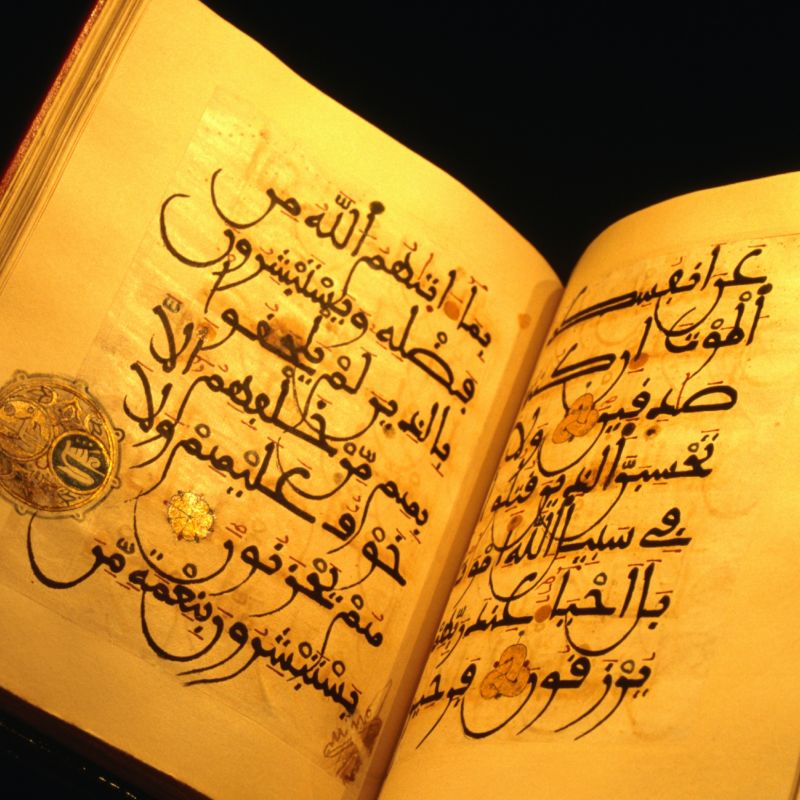 عن أنفسكم
الموت إن كنتم
صدقين ولا
تحسبن الذين قتلوا
في سبيل الله أموتا
بل أحياء عند ربهم
يرزقون فرحين
بما اتيهم الله من
فضله ويستبشرون
بالذين لم يلحقوا
بهم من خلفهم ألا
خوف عليهم ولا
هم يحزنون
يستبشرون بنعمة من